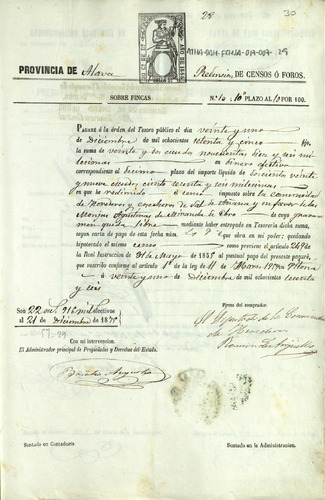 28
30
ATHA-DAH-FCMSA-017-007-29
PROVINCIA DE Alava
Redencion DE CENSOS Ó FOROS.
SOBRE FINCAS
N.º 10 10º PLAZO AL 10 POR 100.
PAGARÁ Á la órden del Tesoro público el dia veinte y uno
de Diciembre de mil ochocientos setenta y cinco
la suma de veinte y dos escudos novecientas diez y seis mi-
lesimas en dinero efectivo
correspondiente al decimo plazo del importe líquido de doscientos veinte
y nueve escudos ciento sesenta y seis milesimas
en que he redimido el censo impuesto sobre la comunidad
de herederos y cosecheros de Sal de Añana y en favor de las
Monjas Agustinas de Miranda de Ebro de cuyo gravá-
men queda libre mediante haber entregado en Tesorería dicha suma,
segun carta de pago de esta fecha núm. que obra en mi poder; quedando
hipotecado el mismo censo como previene el artículo 249 de
la Real Instruccion de 31 de Mayo de 1855 al puntual pago del presente pagaré,
que suscribo conforme al artículo 1.º de la ley de 11 de Marzo de 1859 en Vitoria
á veinte y uno de Diciembre de mil ochocientos sesenta
y seis
Son 22 esc.s 916 mil.s efectivos
al 21 de Diciembre de 1875
Firma del comprador.
El Diputado de la Comunidad
de Herederos
Con mi intervencion.
El Administrador principal de Propiedades y Derechos del Estado.
Sentado en Contaduría
Sentado en la Administracion.